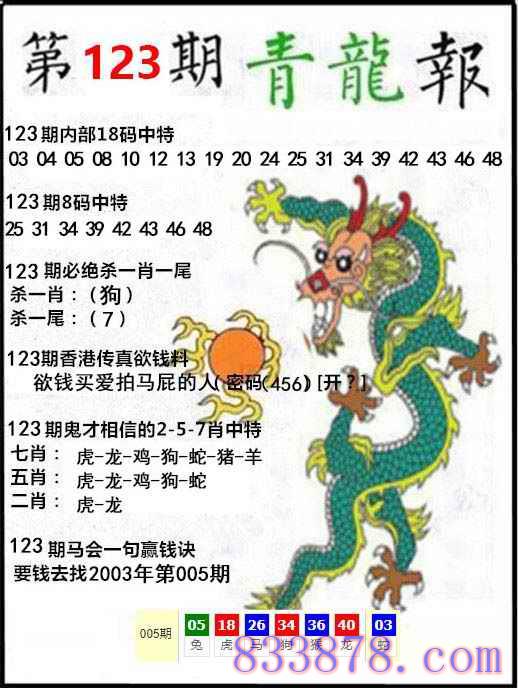 第123期青龍報
123期内部18码中特
03 04 05 08 10 12 13 19 20 24 25 31 34 39 42 43 46 48
123期8码中特
25 31 34 39 42 43 46 48
123期必绝杀一肖一尾
杀一肖：(狗)
杀一尾：(7)
123期香港传真欲钱料
欲钱买爱拍马屁的人(密码(456)[开?]
123期鬼才相信的2-5-7肖中特
七肖：虎-龙-鸡-狗-蛇-猪-羊
五肖：虎-龙-鸡-狗-蛇
二肖：虎-龙
123期马会一句赢钱诀
要钱去找2003年第005期
005期 05 18 26 34 36 40 03
兔 虎 马 狗 猴 龙 蛇
833878.com